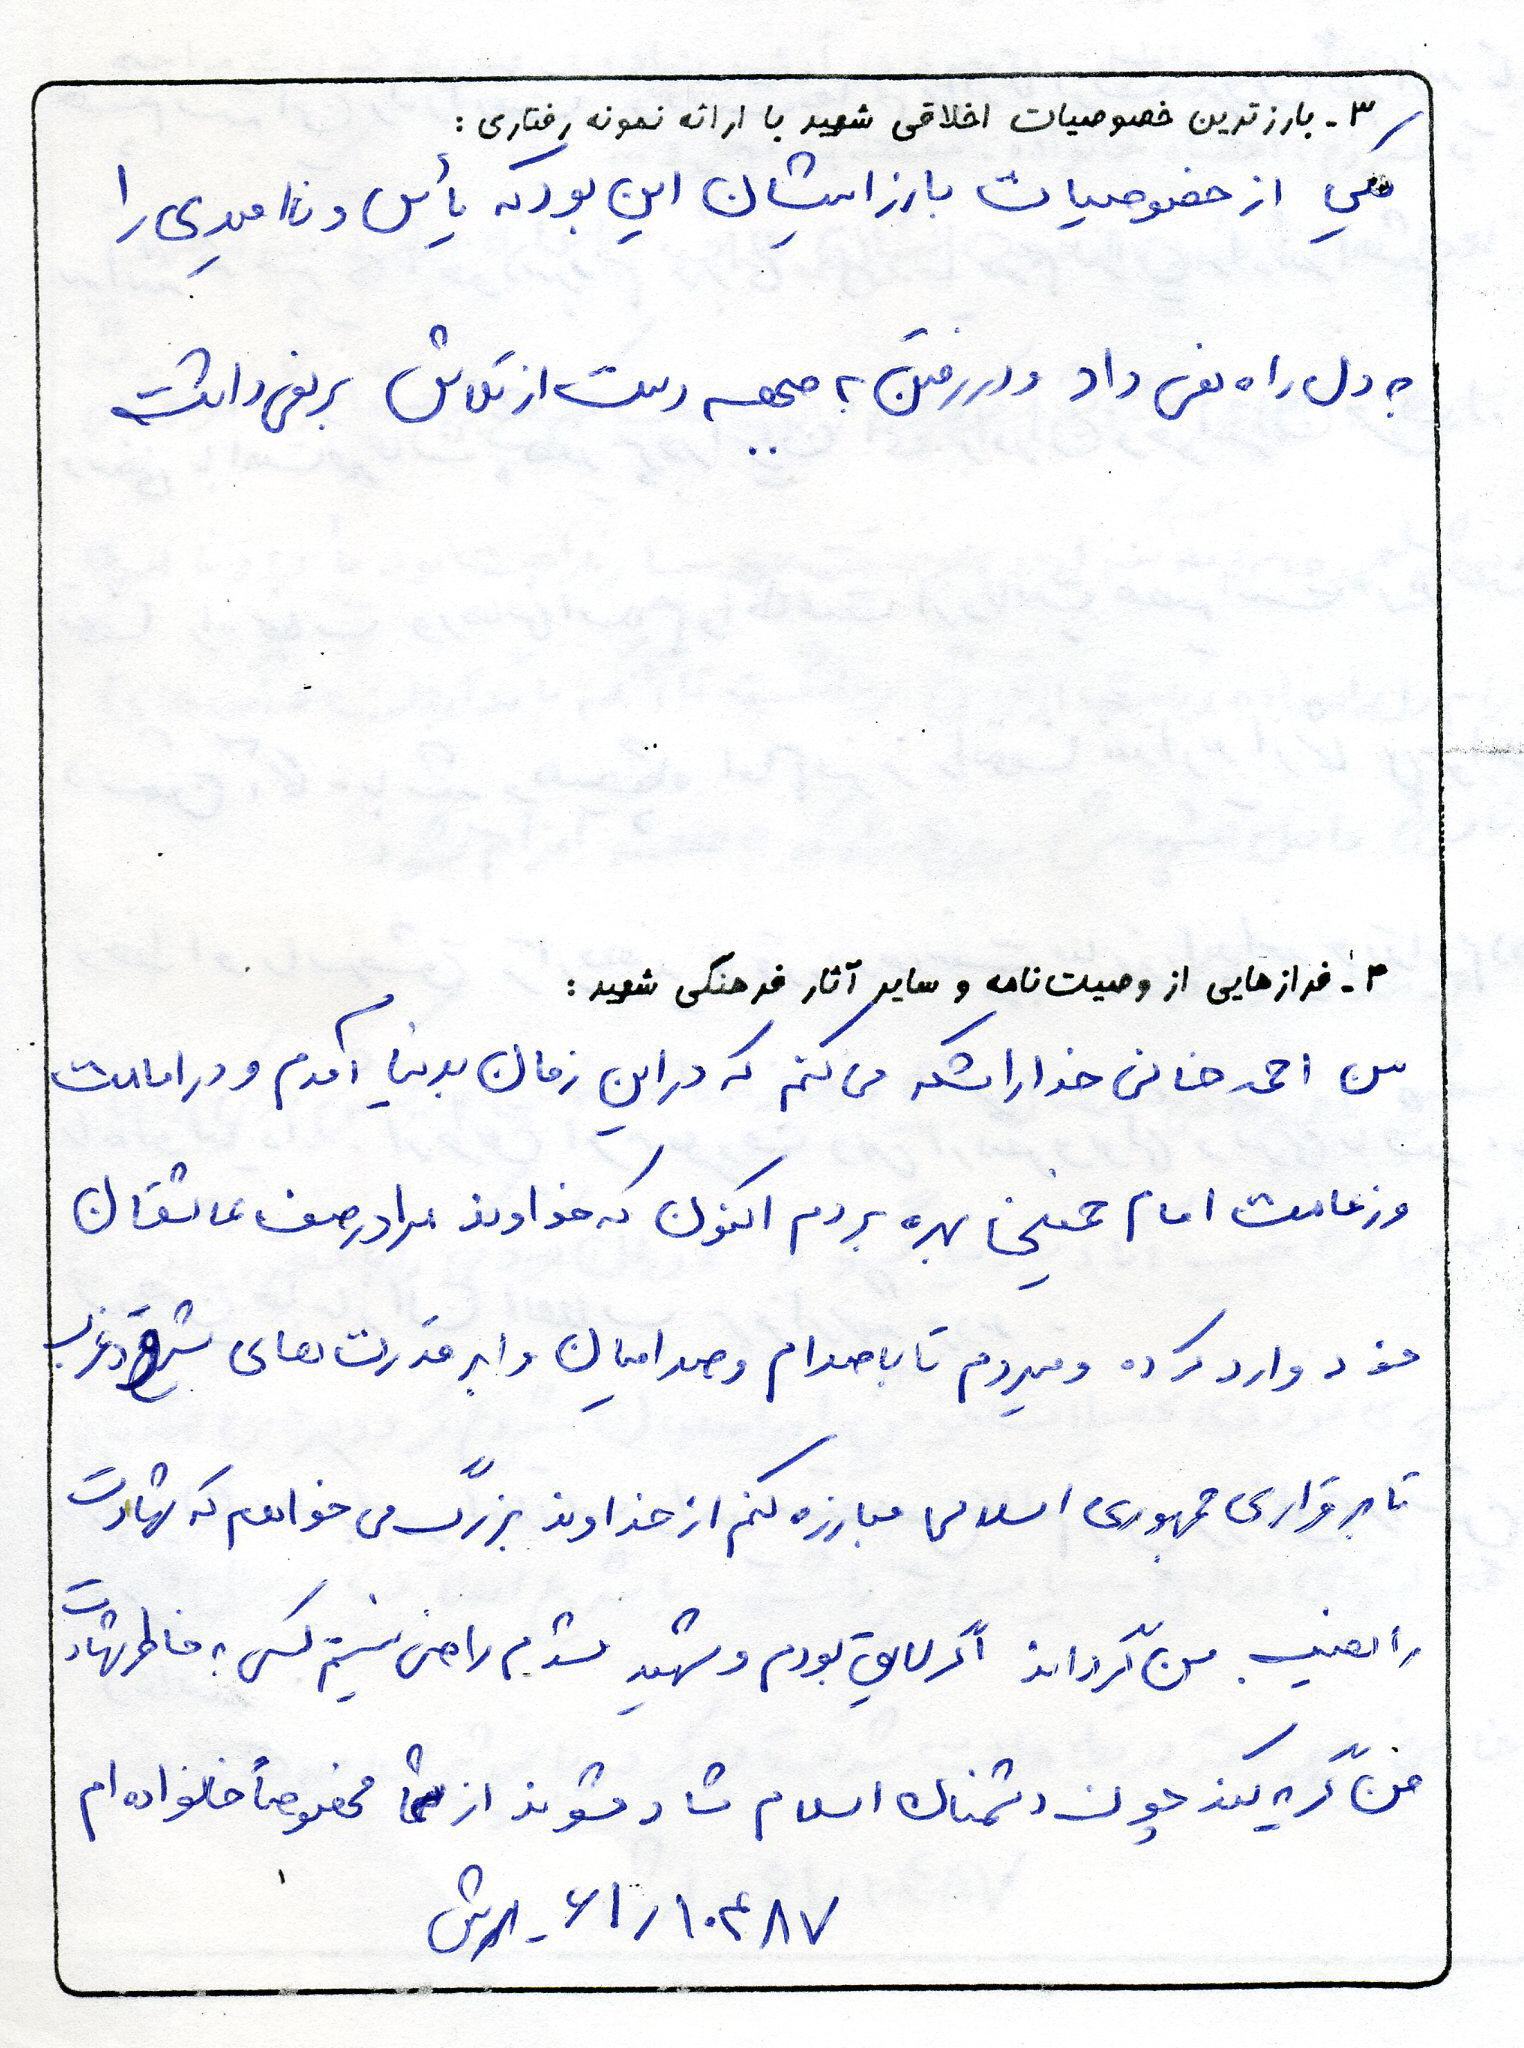 ۳ـ بارزترین خصوصیات اخلاقی شهید با ارائه نمونه رفتاری :
یکی از خصوصیات بارز ایشان این بود که یأس و ناامیدی را
به دل راه نمی داد و در رفتن به جبهه دست از تلاش بر نمی داشت
۴ـ فرازهایی از وصیت‌نامه و سایر آثار فرهنگی شهید :
من احمد خانی خدا را شکر می کنم که در این زمان بدنیا آمدم و در امامت
و زعامت امام خمینی بهره بردم اکنون که خداوند مرا در صف عاشقان
خود وارد کرده و میروم تا با صدام و صدامیان و ابرقدرت های شرق و غرب
تا برقراری جمهوری اسلامی مبارزه کنم از خداوند بزرگ می خواهم که شهادت
را نصیب من گرداند اگر لایق بودم و شهید شدم راضی نیستم کسی به خاطر شهادت
من گریه کند چون دشمنان اسلام شاد میشوند از شما مخصوصاً خانواده ام
۶۱/۱۰۴۸۷